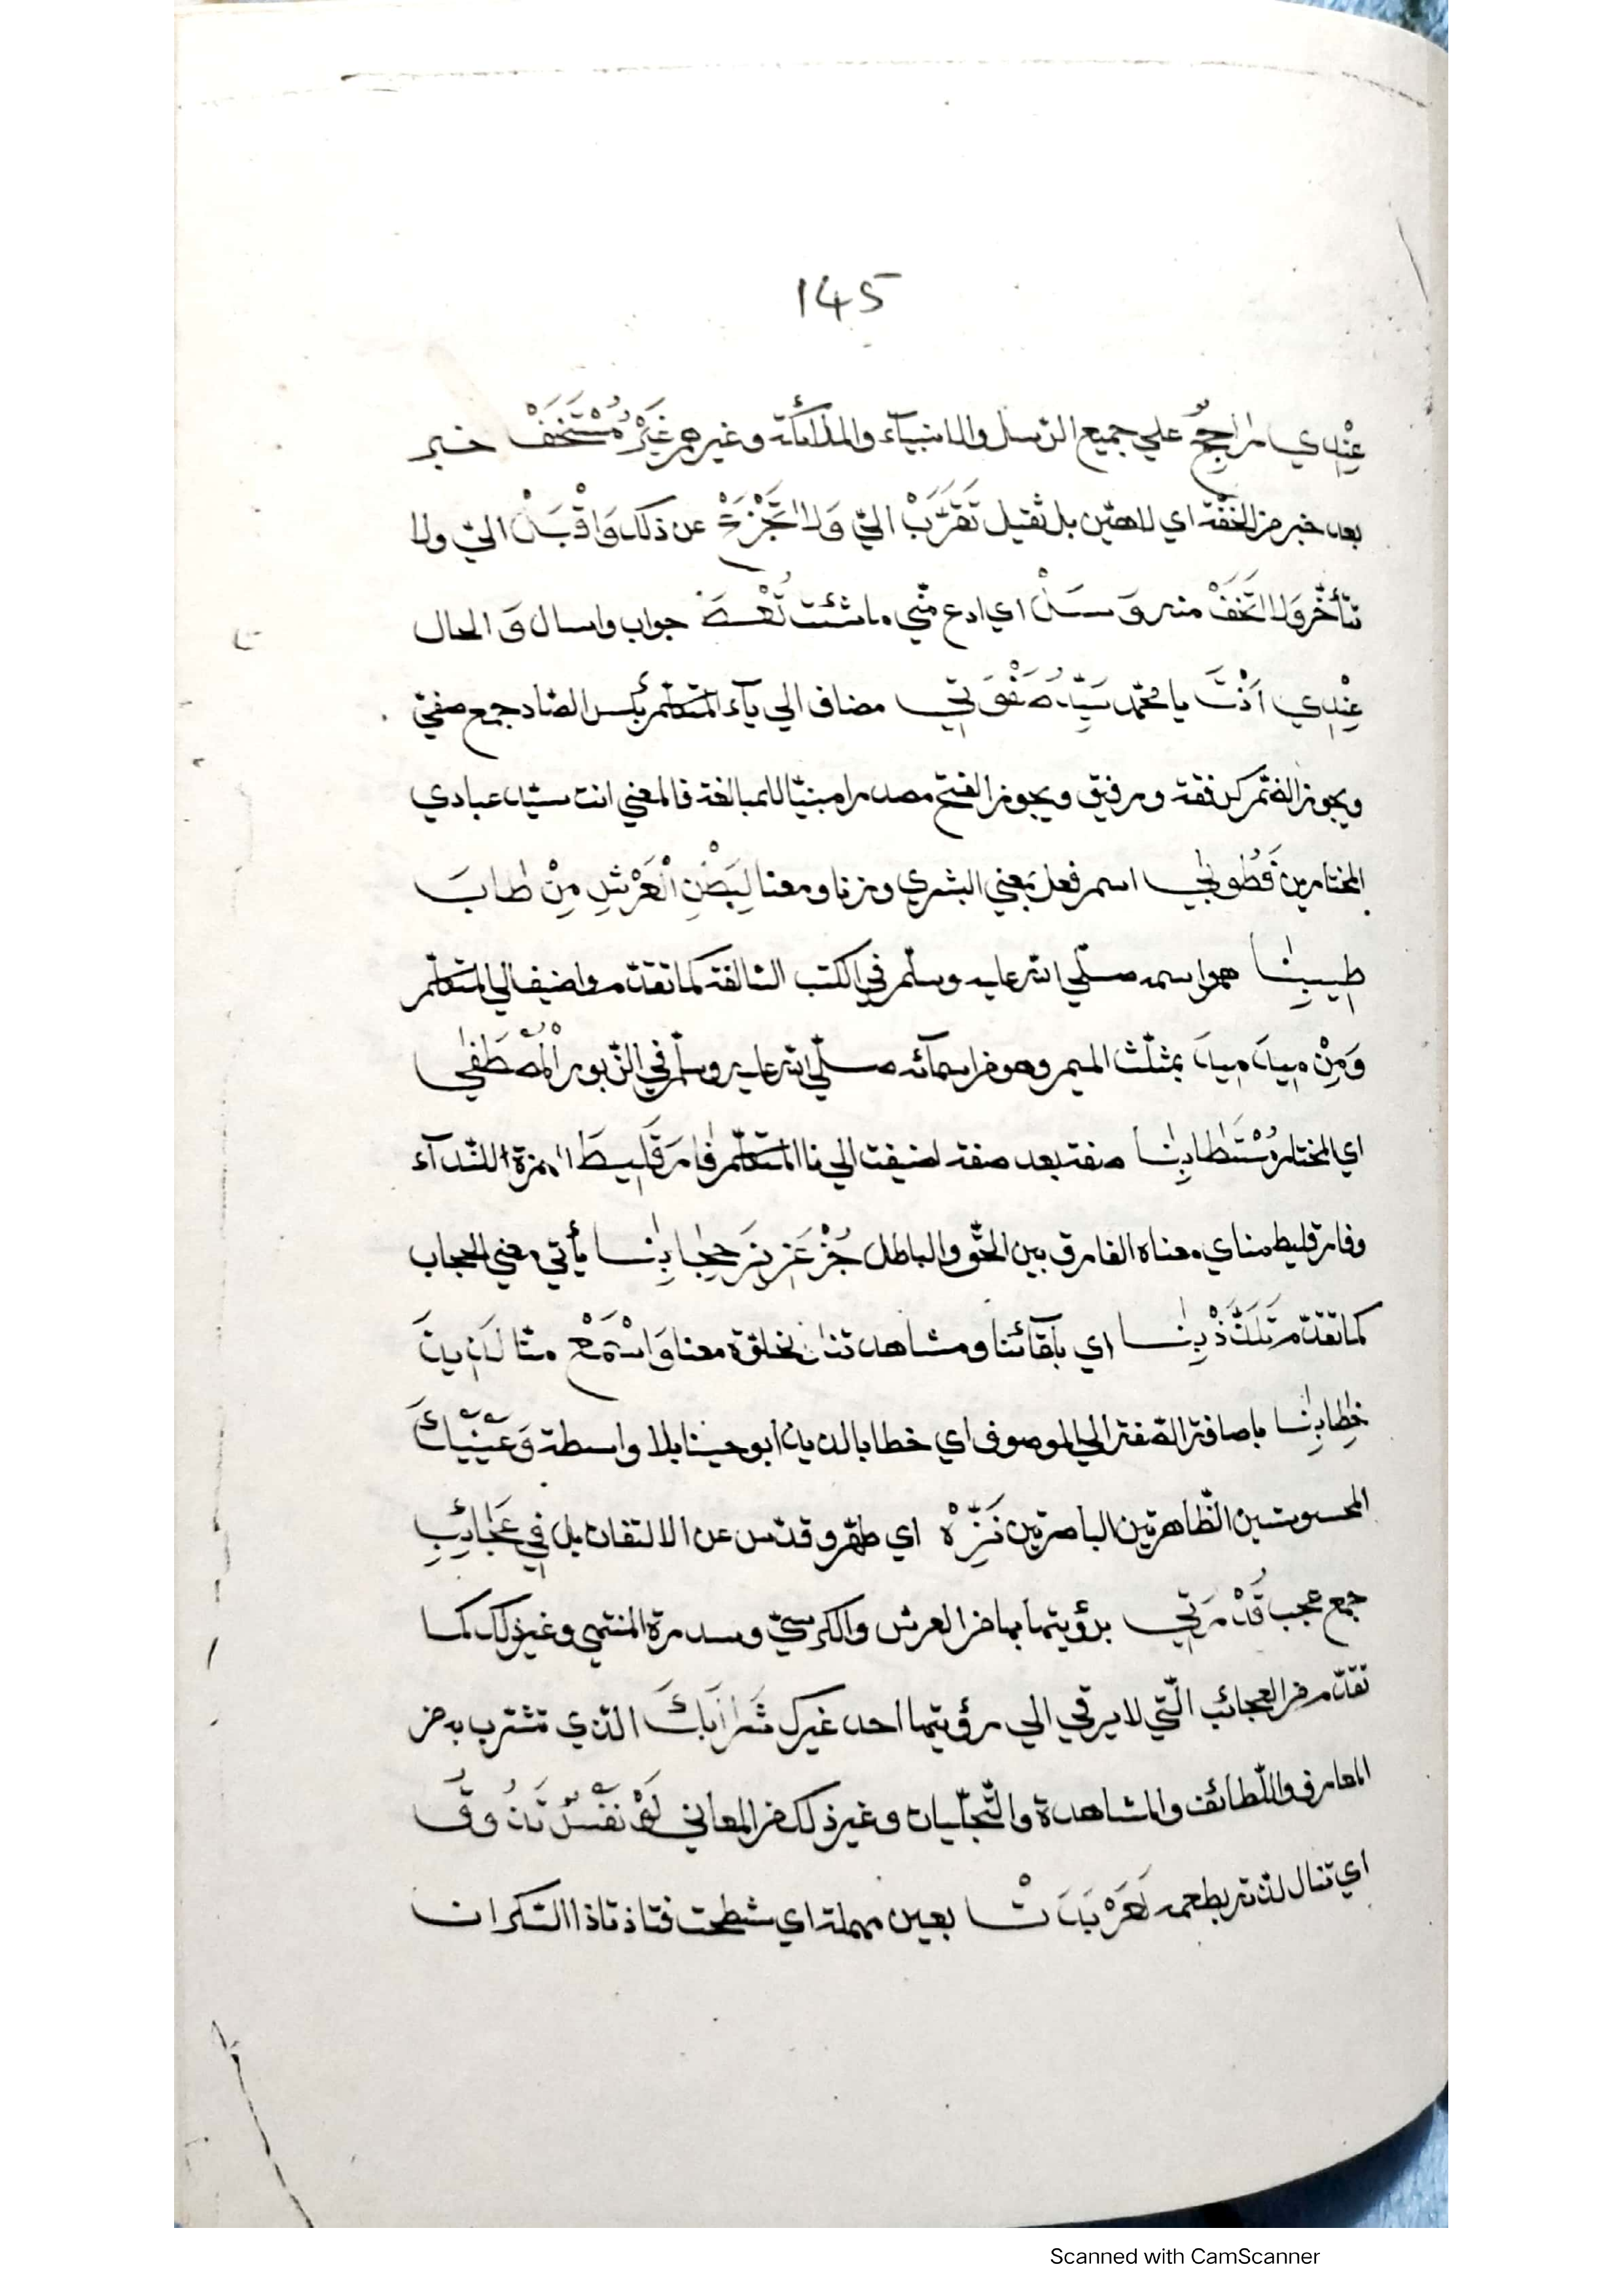 145
عِنْدِي رَاجِحٌ علي جميع الرّسل والانبيآء والملآئكة وغيرهم غَيْرُ مُسْتَخَفْ خبر
بعد خبر من الخفّة اي لا هيّن بل ثقيل تَقَرَّبْ اليّ وَلَا تَجْزَعْ عن ذلك وَاقْبَلْ اليّ ولا
تتأخّر وَلَا تَخَفْ منه وَسَلْ اي ادع منّي ما شئت تُعْطَ جواب واسال وَ الحال
عِنْدِي اَنْتَ يا محمّد سَيِّدُ صَفْوَتِي مضاف الي يآء المتكلّم بكسر الصّاد جمع صفيّ
ويجوز الضّمّ كرفقة ورفيق ويجوز الفتح مصدرا مبنيّا للمبالغة فالمعني انت سيّد عبادي
المختارين فَطُوبٰي اسم فعل بمعني البشري وزنا ومعنا لِبَطْنِ الْعَرْشِ مِنْ طَابَ
طِيبِنَا هو اسمه صلّي الله عليه وسلّم في الكتب السّالفة كما تقدّم واضيف الي المتكلّم
وَمِنْ مِيدَ مِيدَ بمثلّث الميم وهو من اسمآئه صلّي الله عليه وسلّم في الزّبور الْمُصْطَفٰي
اي المختار مُسْتَطَابِنَا صفة بعد صفة اضيفت الي نا المتكلّم فَارَقَلِيطَ الهمزة للنّدآء
وفارقليط منادي معناه الفارق بين الحقّ والباطل جُزْ عَزِيزَ حِجَابِنَا يأتي معني الحجاب
كما تقدّم تَلَذَّذْ بِنَا اي بلقآئنا ومشاهدتنا بخلوة معنا وَاسْتَمِعْ منّا لَذِيذَ
خِطَابِنَا باضافة الصّفة الي الموصوف اي خطابا لذيذا بوحينا بلا واسطة وَعَيْنَيْكَ
المحسوستين الظّاهرتين الباصرتين نَزِّهْ اي طهّر وقدّس عن الالتفات بل فِي عَجَائِبِ
جمع عجب قُدْرَتِي برؤيتهما بها من العرش والكرسيّ وسدرة المنتهي وغير ذلك كما
تقدّم من العجائب الّتي لا يرقي الي رؤيتها احد غيرك شَرَابَكَ الّذي تشرب به من
المعارف واللّطائف والمشاهدة والتّجلّيات وغير ذلك من المعاني لَوْ نَفْسٌ تَذُوقُ
اي تنال لذّته بطعمه لَعَرْبَدَتْ بعين مهملة اي شطحت فتلذّذ تلذّذ السّكران
Scanned with CamScanner